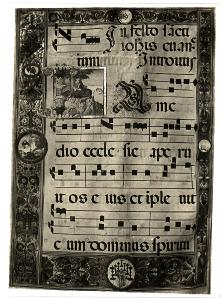 In festo sancti
iohis euan
Introitus
me
dio eccle sie ape ru
it os e ius et iple uit
e um dominus spiritu